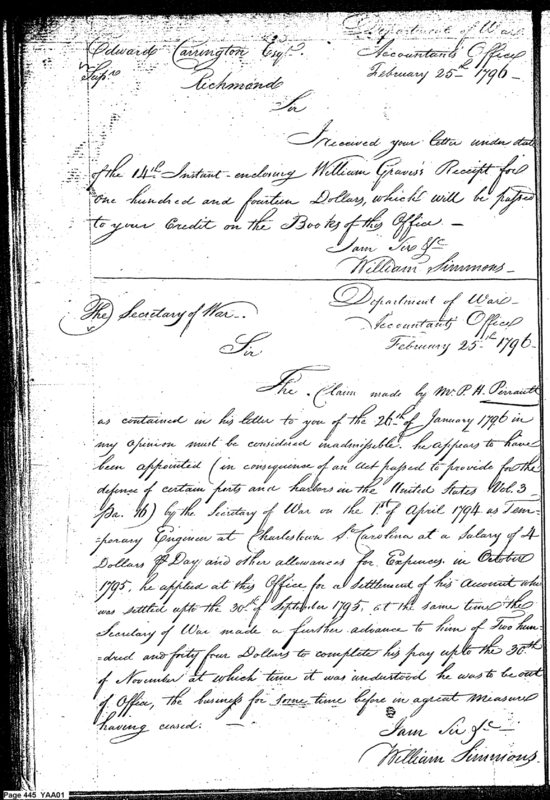 Department of War
Edward Carrington Esqr. Accountant's Office
Supr. February 25th 1796 -
Richmond
Sir
I received your letter under date
of the 14th Instant - enclosing William Graves's Receipt for
one hundred and fourteen Dollars, which will be passed
to your Credit on the Books of this Office -
I am Sir &c
William Simmons -
Department of War -
The Secretary of War - Accountant's Office
February 25th 1796 -
Sir
The Claim made by Mr. P. H. Perrault
as contained in his letter to you of the 26th of January 1796 in
my opinion must be considered inadmissible. he appears to have
been appointed (in consequence of an Act passed to provide for the
defense of certain ports and harbors in the United States Vol. 3 -
Pa. 16) by the Secretary of War on the 1st of April 1794 as Tem-
porary Engineer at Charlestown So Carolina at a Salary of 4
Dollars Pr Day and other allowances for Expences, in October
1795, he applied at this Office for a settlement of his Account who
was settled upto the 30th of September 1795, at the same time the
Secretary of War made a further advance to him of Two hun-
=dred and forty four Dollars to complete his pay upto the 30th
of November at which time it was understood he was to be out
of Office, the business for some time before in a great measure
having ceased. -
I am Sir &c -
William Simmons.
Page 445 YAA01